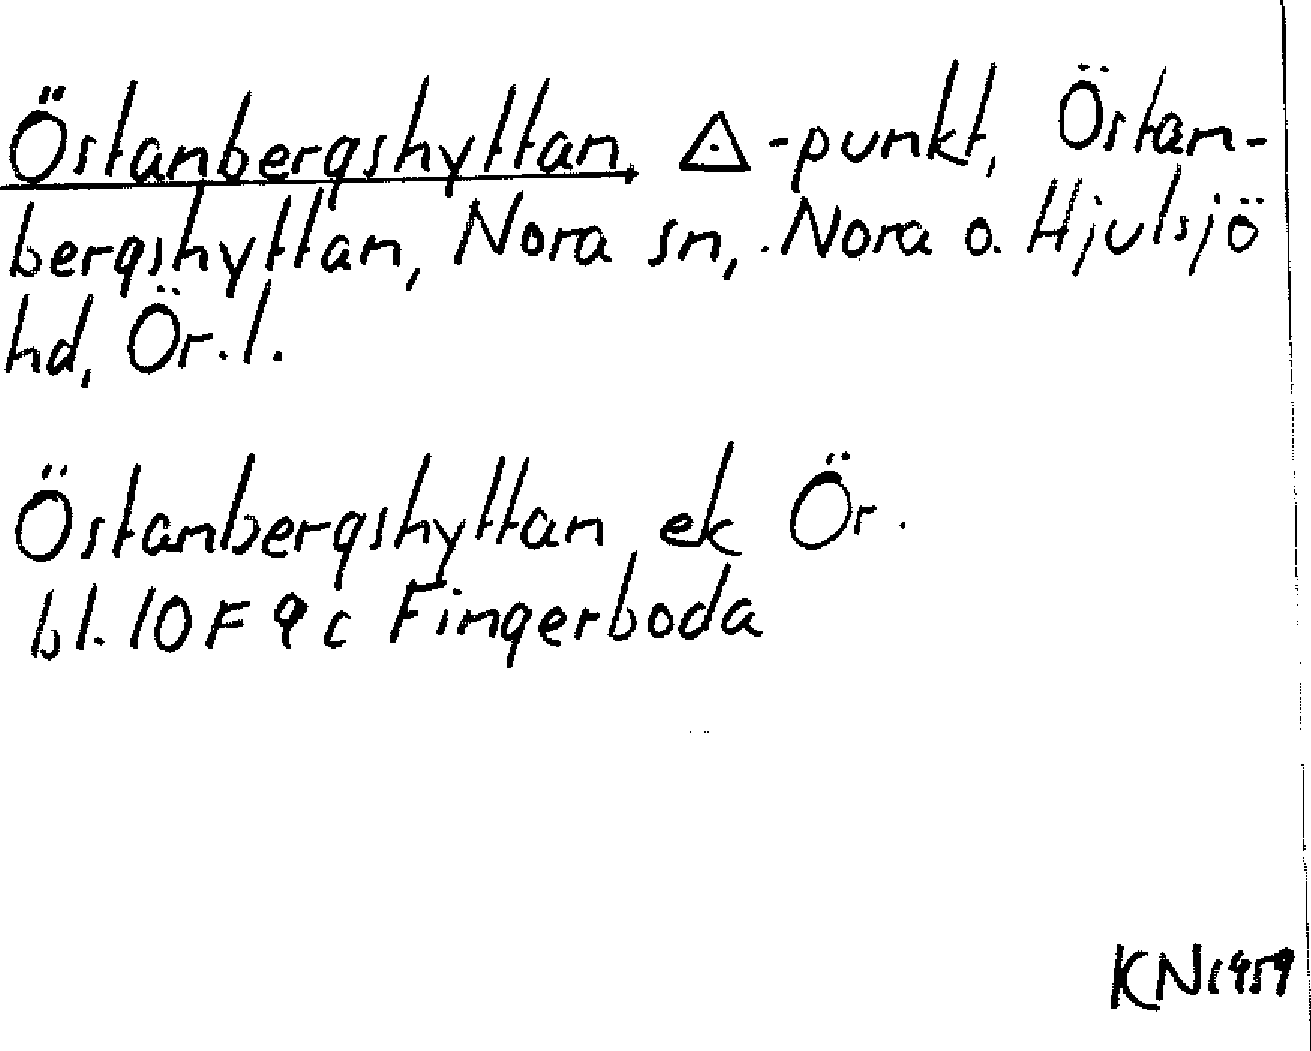 Östanbergshyttan, △-punkt, Östan-
bergshyttan, Nora sn, Nora o. Hjulsjö
hd, Ör. l.
Östanbergshyttan ek Ör.
bl. 10F 9c Fingerboda
KN 1959